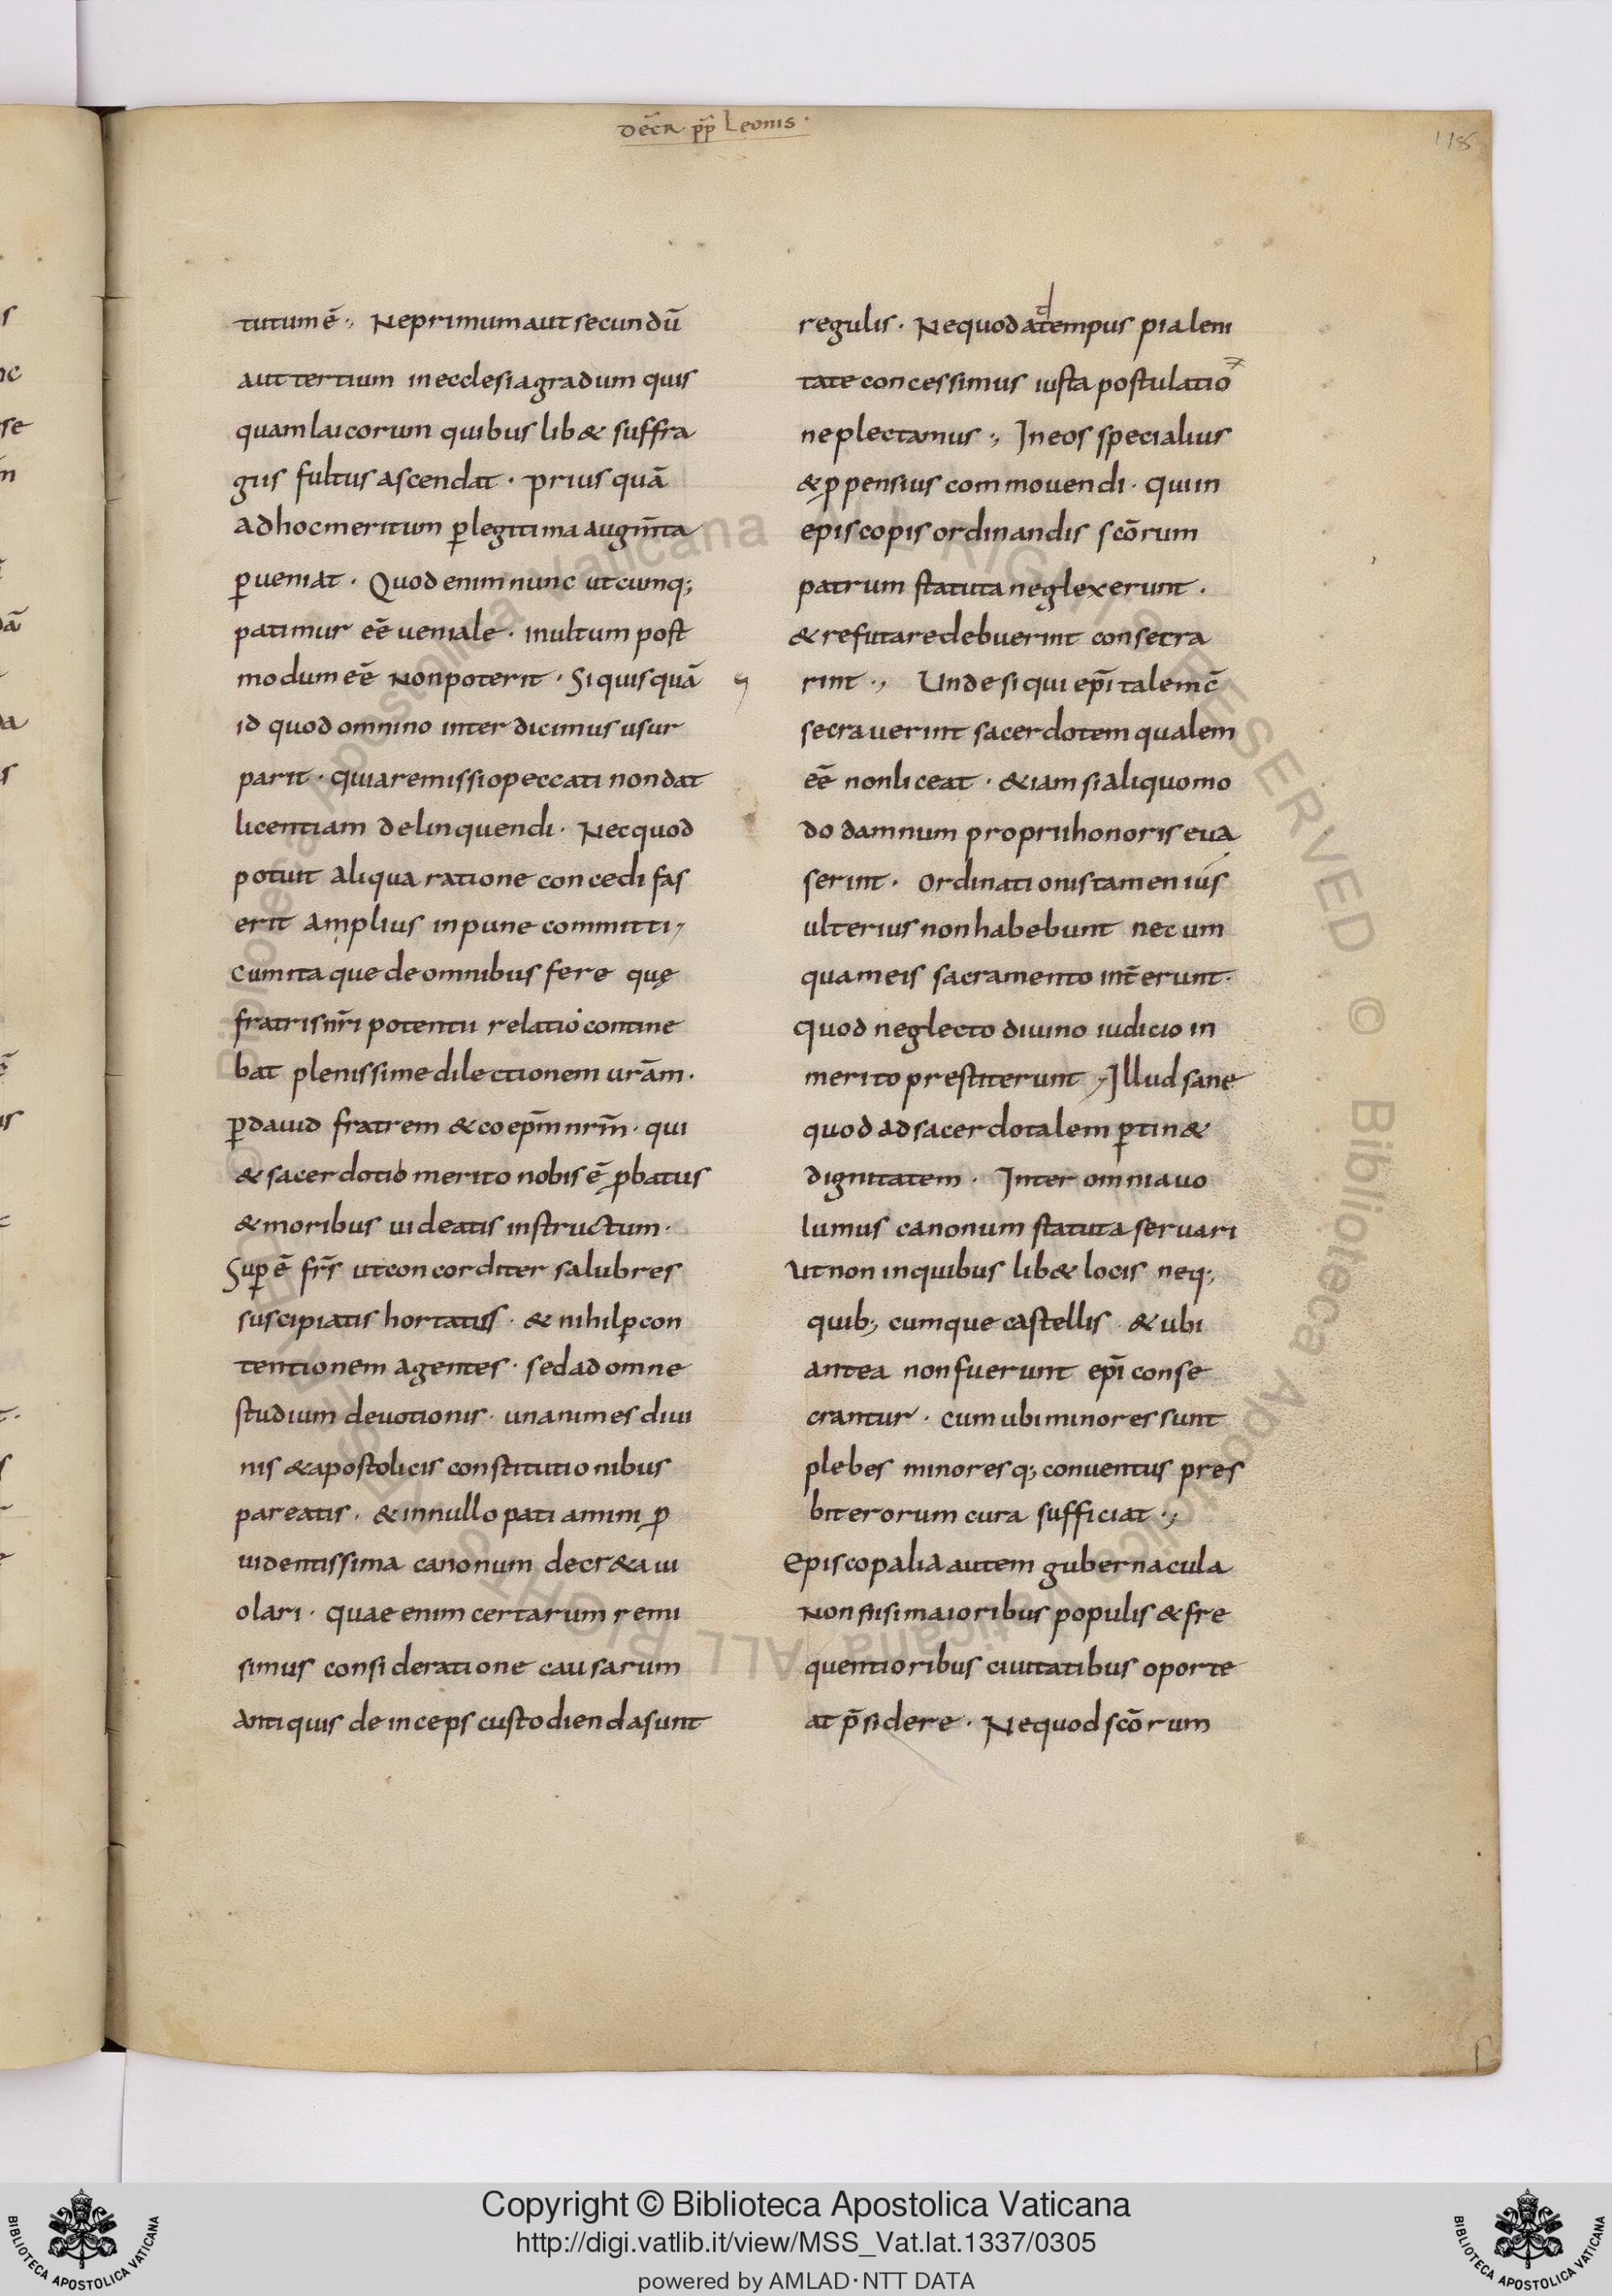 DECR̄ pp̄ Leonis ·
118
tutum ē ., Ne primum aut secundū
aut tertium in ecclesia gradum quis
quam laicorum quibus lib& suffra
giis fultus ascendat · prius quā
ad hoc meritum ꝑ legitima augm̄ta
ꝑueniat · Quod enim nunc utcumq;
patimur eē ueniale · inultum post
modum eē Non poterit · Si quisquā
id quod omnino interdicimus usur
parit · quia remissio peccati non dat
licentiam delinquendi · Nec quod
potuit aliqua ratione concedi fas
erit amplius inpune committi,
Cum itaque de omnibus fere quę
fratris nr̄i potentii relatio contine
bat plenissime dilectionem urām ·
ꝑ dauid fratrem & coep̄m nrm̄ · qui
& sacerdotio merito nobis ē ꝓbatus
& moribus uideatis instructum ·
Supē fr̄s ut concorditer salubres
suscipiatis hortatus · & nihil ꝑ con
tentionem agentes · sed ad omne
studium deuotionis · unanimes diui
nis & apostolicis constitutionibus
pareatis · & in nullo patiamini ꝓ
uidentissima canonum decr&a ui
olari · quae enim certarum remi
simus consideratione causarum
antiquis deinceps custodienda sunt
regulis · Ne quod ad tempus pia leni
tate concessimus iusta postulatio
ne plectamus ., In eos specialius
& ꝓpensius commouendi · qui in
episcopis ordinandis scōrum
patrum statuta neglexerunt ·
& refutare debuerint consecra
rint ., Unde si qui ep̄i talem c̄
secrauerint sacerdotem qualem
eē non liceat · &iam si aliquo mo
do damnum proprii honoris eua
serint · ordinationis tamen ius
ulterius non habebunt nec um
quam eis sacramento int̄erunt ·
quod neglecto diuino iudicio in
merito prestiterunt , Illud sane
quod ad sacerdotalem ꝑtin&
dignitatem · Inter omnia uo
lumus canonum statuta seruari
Ut non in quibus lib& locis neq;
quib; cumque castellis · & ubi
antea non fuerunt ep̄i conse
crantur · cum ubi minores sunt
plebes minoresq; conuentus pres
biterorum cura sufficiat .,
Episcopalia autem gubernacula
Non nisi maioribus populis & fre
quentioribus ciuitatibus oporte
at p̄sidere · Ne quod scōrum
Copyright © Biblioteca Apostolica Vaticana
http://digi.vatlib.it/view/MSS_Vat.lat.1337/0305
powered by AMLAD·NTT DATA
BIBLIOTECA APOSTOLICA VATICANA
BIBLIOTECA APOSTOLICA VATICANA